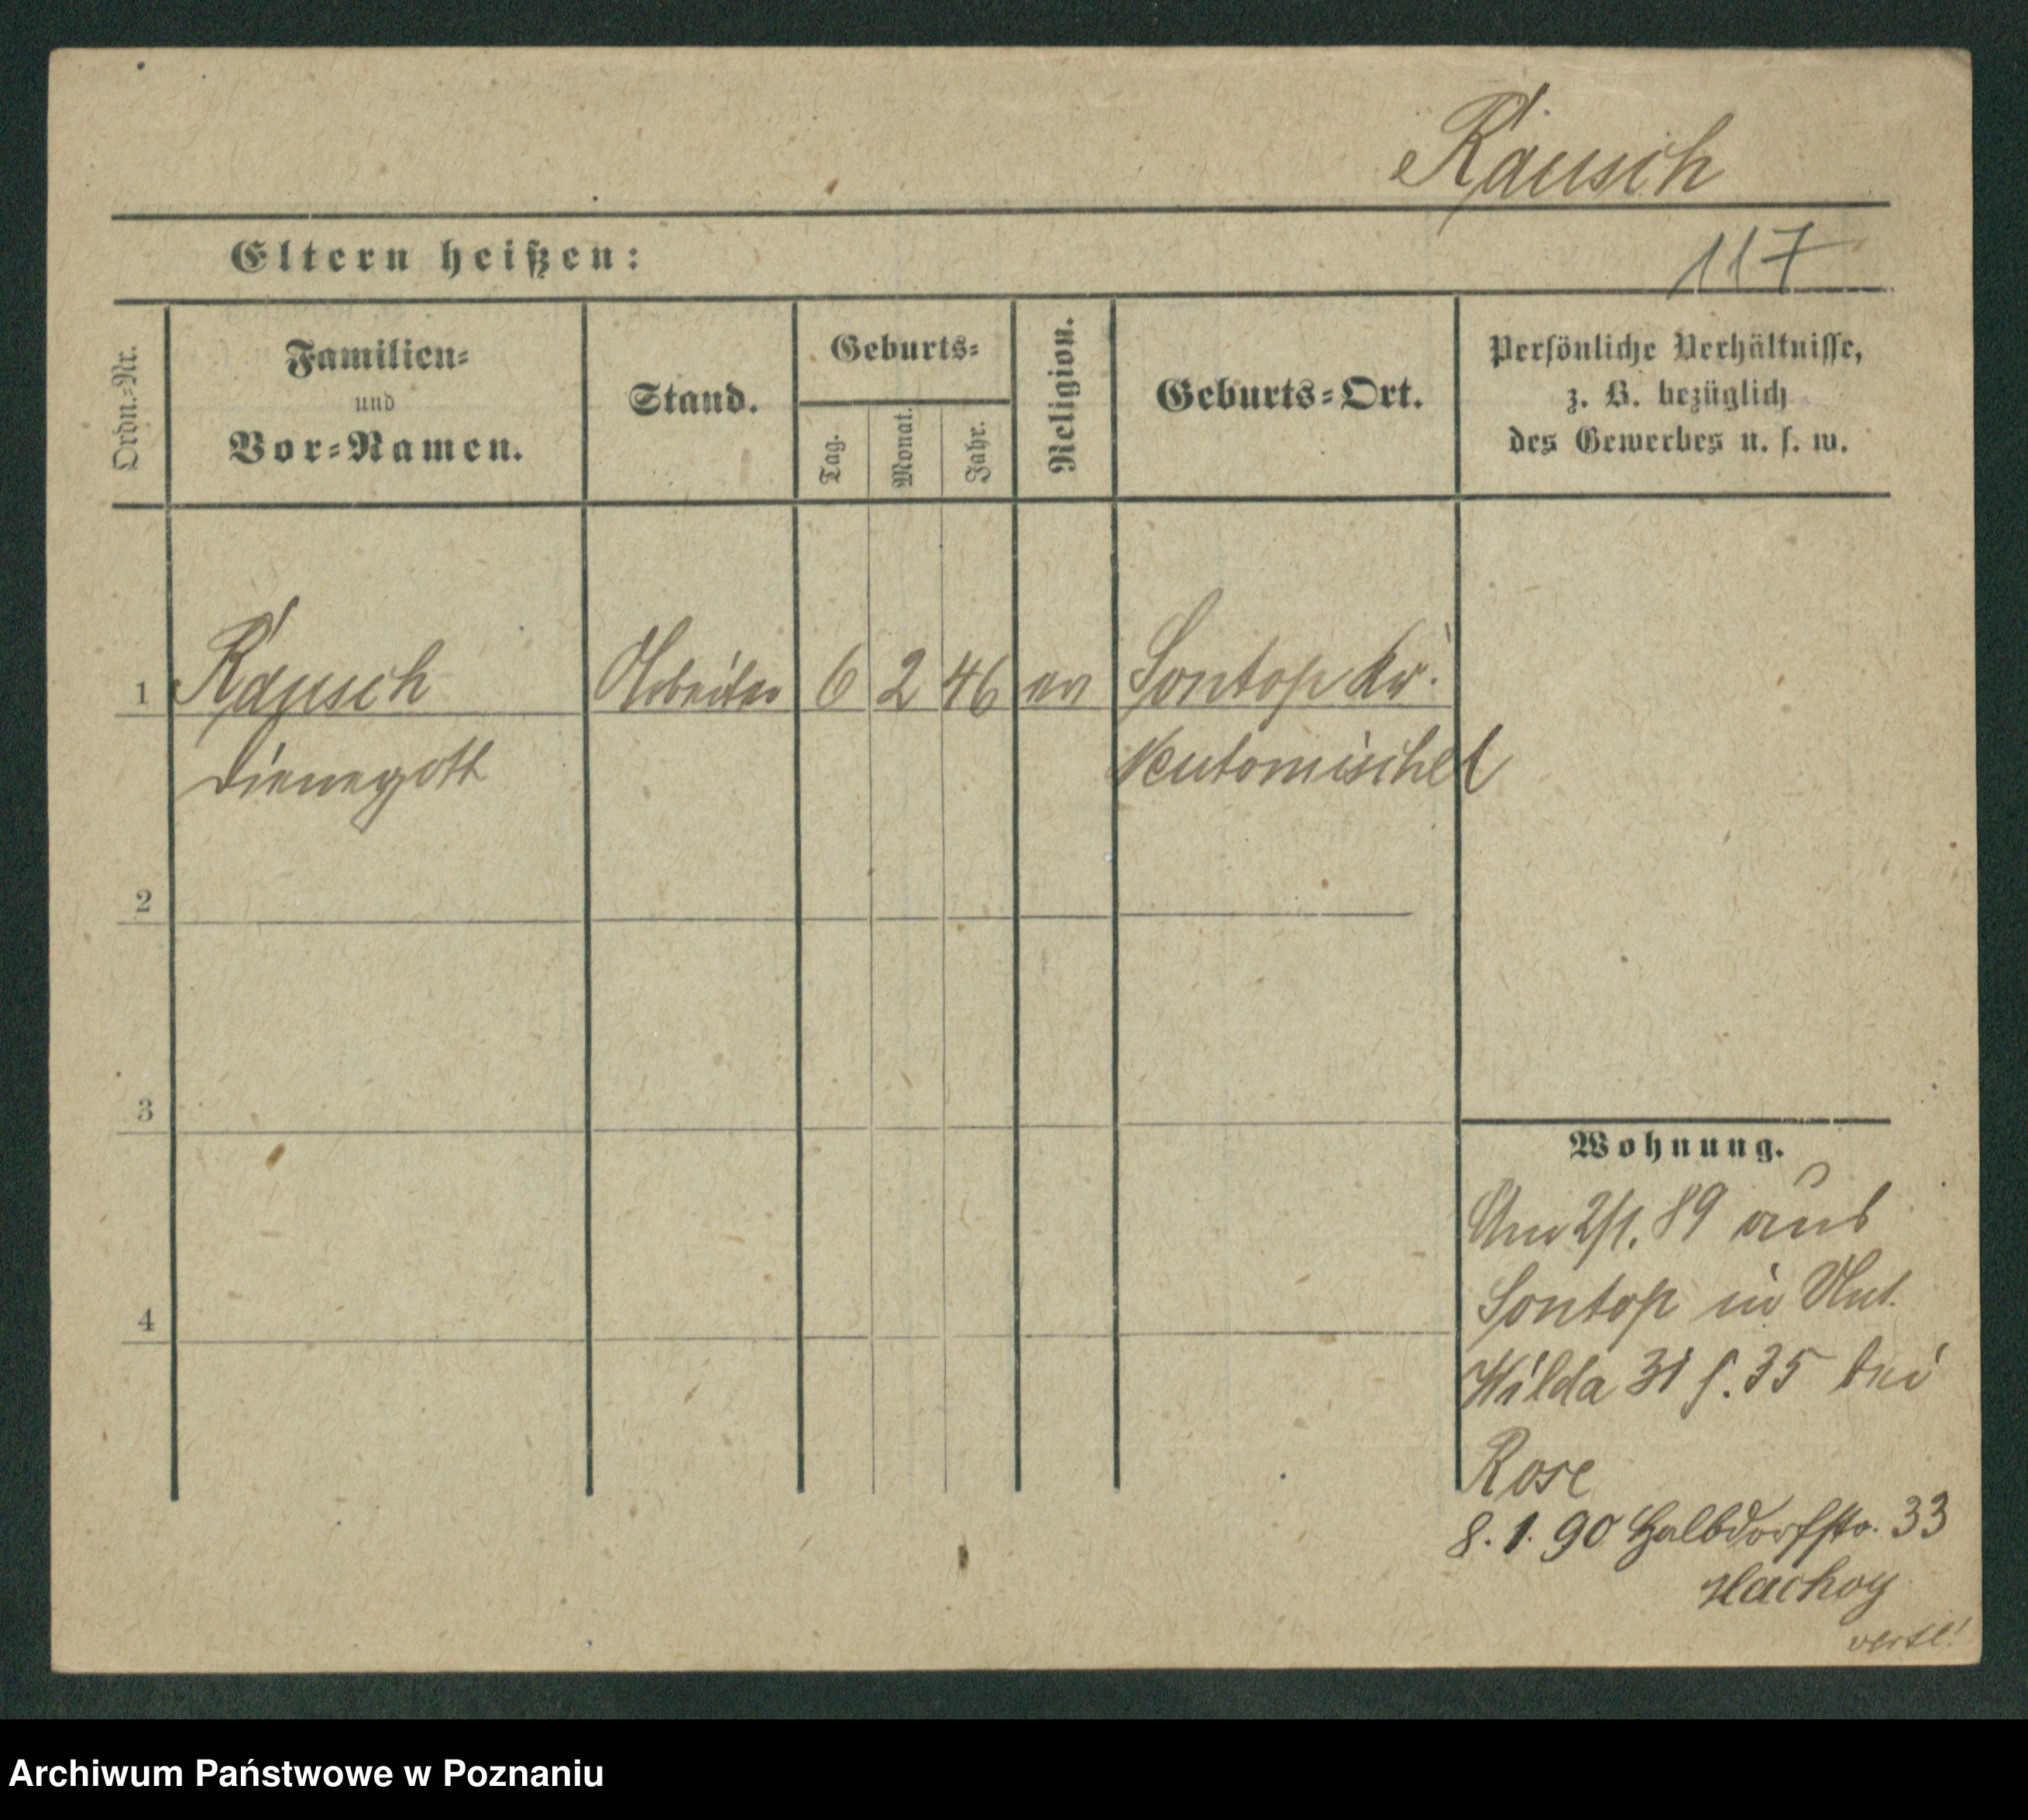 Rausch
Eltern heißen:
117
Ordn.=Nr.
Familien=
und
Vor=Namen.
Stand.
Geburts=
Tag.
Monat.
Jahr.
Religion.
Geburts=Ort.
Persönliche Verhältnisse,
z. B. bezüglich
des Gewerbes u. s. w.
1 Rausch Arbeiter 6 2 46 ev Sontop Kr.
Dienegott Neutomischel
2
3
4
Wohnung.
Am 2/1. 89 aus
Sontop in Unt.
Wilda 31 f. 35 bei
Rose
8. 1. 90 Halbdorfstr. 33
Archiwum Państwowe w Poznaniu